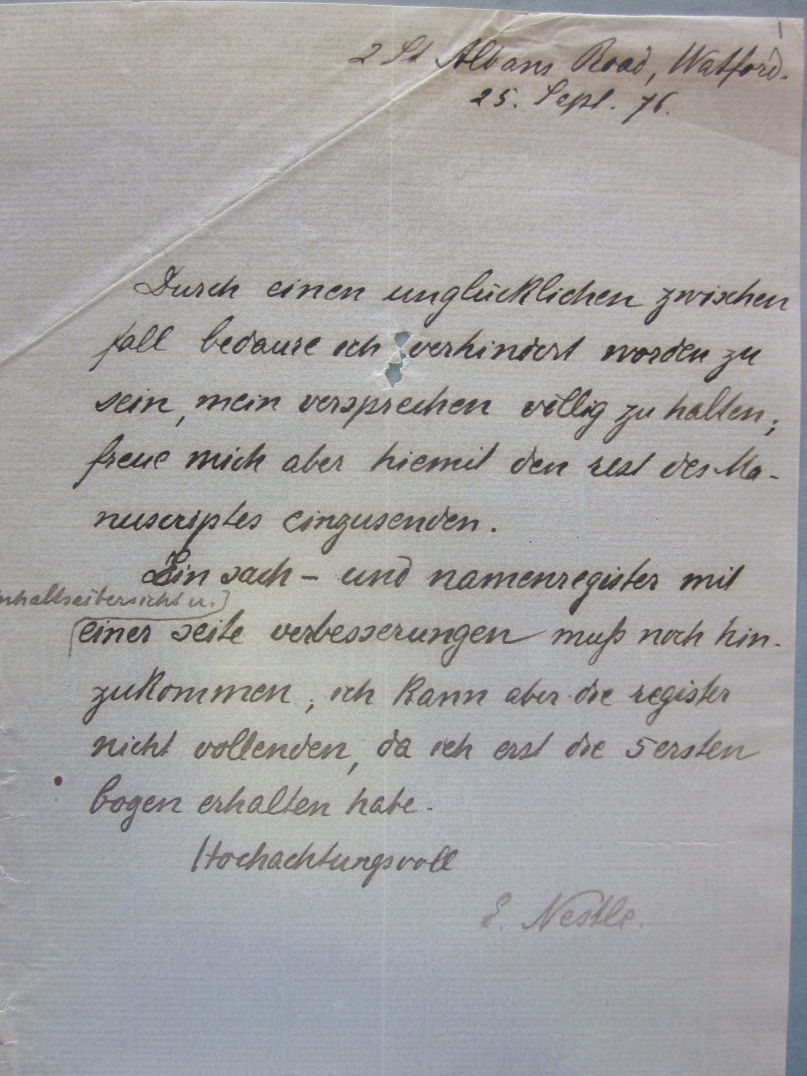 1
2 St Albans Road, Watford.
25. Sept. 76.
Durch einen unglücklichen zwischen
fall bedaure ich verhindert worden zu
sein, mein versprechen völlig zu halten;
freue mich aber hiemit den rest des Ma-
nuscriptes einzusenden.
Ein sach- und namenregister mit
inhaltseibersicht u.
einer seite verbesserungen muß noch hin-
zukommen; ich kann aber die register
nicht vollenden, da ich erst die 5 ersten
bogen erhalten habe.
Hochachtungsvoll
E. Nestle.